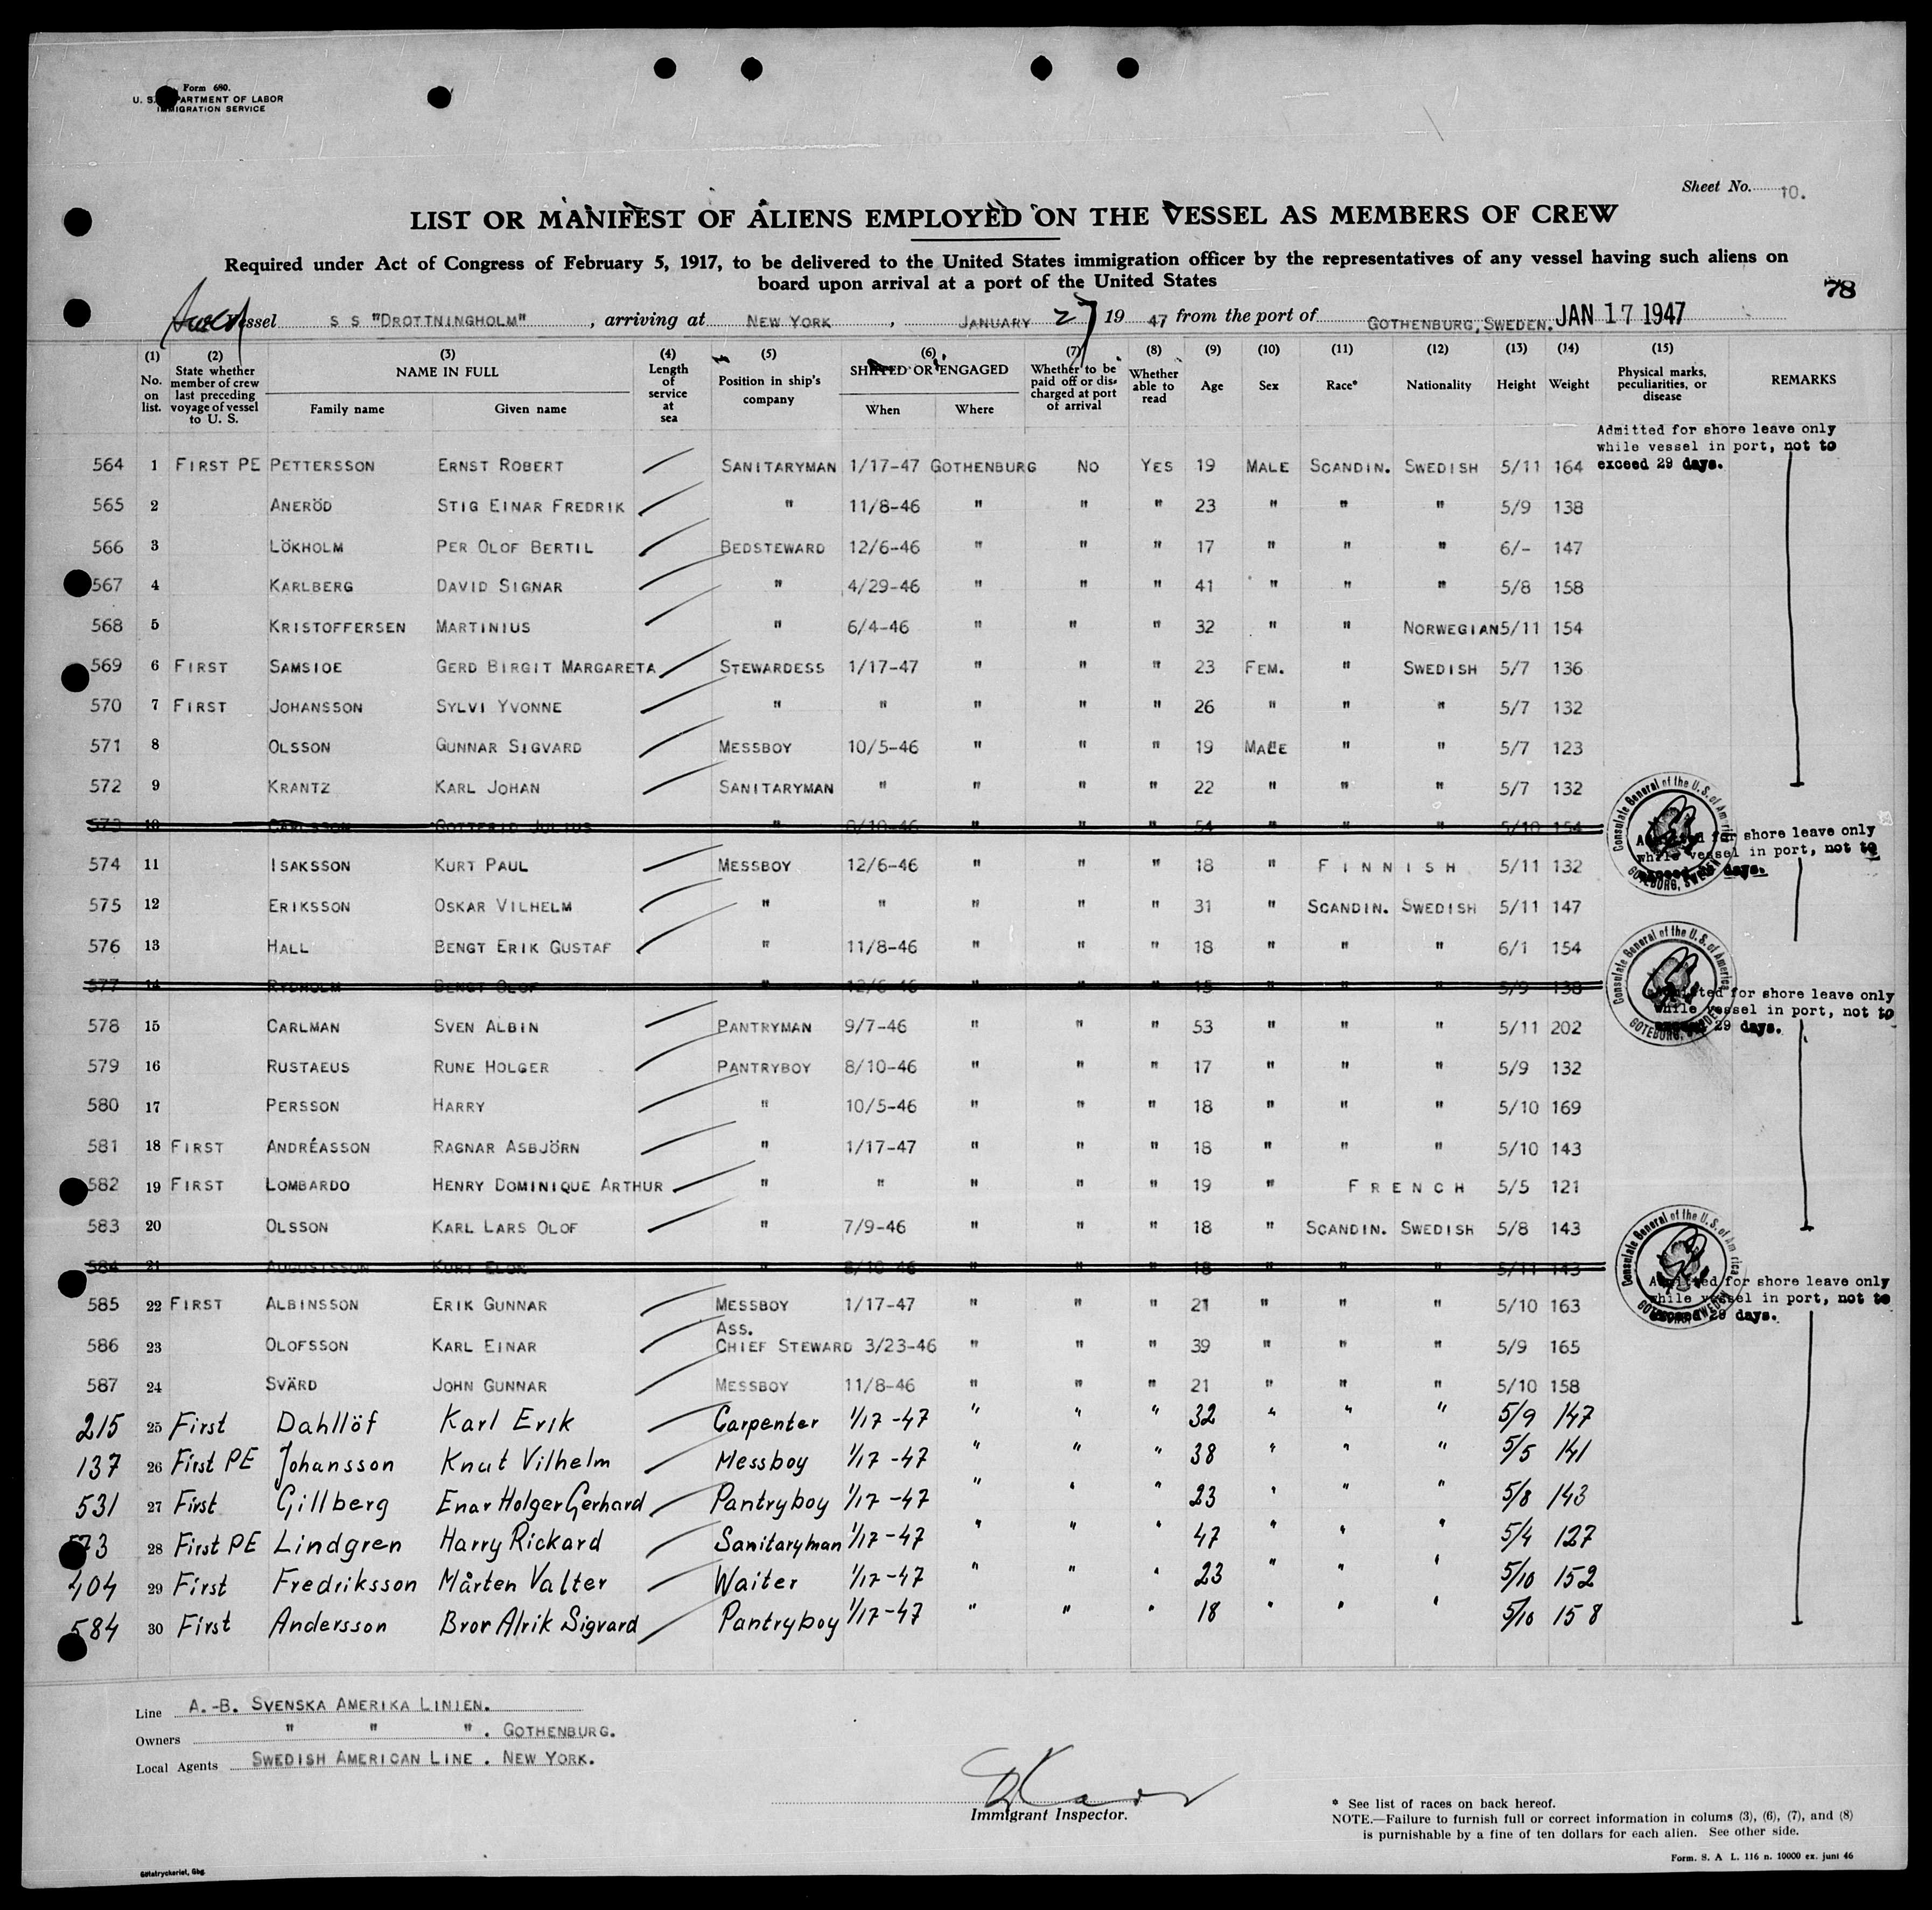 Form 680.
U. S. DEPARTMENT OF LABOR
IMMIGRATION SERVICE
Sheet No. 10.
LIST OR MANIFEST OF ALIENS EMPLOYED ON THE VESSEL AS MEMBERS OF CREW
Required under Act of Congress of February 5, 1917, to be delivered to the United States immigration officer by the representatives of any vessel having such aliens on
board upon arrival at a port of the United States
78
Vessel S S "DROTTNINGHOLM" , arriving at NEW YORK , JANUARY 27 19 47 from the port of GOTHENBURG, SWEDEN. JAN 17 1947
(1) No. on list. (2) State whether member of crew last preceding voyage of vessel to U. S. (3) NAME IN FULL Family name Given name (4) Length of service at sea (5) Position in ship's company (6) SHIPPED OR ENGAGED When Where (7) Whether to be paid off or discharged at port of arrival (8) Whether able to read (9) Age (10) Sex (11) Race* (12) Nationality (13) Height (14) Weight (15) Physical marks, peculiarities, or disease REMARKS
Admitted for shore leave only
while vessel in port, not to
exceed 29 days.
564 1 FIRST PE PETTERSSON ERNST ROBERT SANITARYMAN 1/17-47 GOTHENBURG NO YES 19 MALE SCANDIN. SWEDISH 5/11 164
565 2 ANERÖD STIG EINAR FREDRIK " 11/8-46 " " " 23 " " " 5/9 138
566 3 LÖKHOLM PER OLOF BERTIL BEDSTEWARD 12/6-46 " " " 17 " " " 6/- 147
567 4 KARLBERG DAVID SIGNAR " 4/29-46 " " " 41 " " " 5/8 158
568 5 KRISTOFFERSEN MARTINIUS " 6/4-46 " " " 32 " " NORWEGIAN 5/11 154
569 6 FIRST SAMSIOE GERD BIRGIT MARGARETA STEWARDESS 1/17-47 " " " 23 FEM. " SWEDISH 5/7 136
570 7 FIRST JOHANSSON SYLVI YVONNE " " " " " 26 " " " 5/7 132
571 8 OLSSON GUNNAR SIGVARD MESSBOY 10/5-46 " " " 19 MALE " " 5/7 123
572 9 KRANTZ KARL JOHAN SANITARYMAN " " " " 22 " " " 5/7 132
573 10 CARLSSON GOTTFRID JULIUS " 8/10-46 " " " 54 " " " 5/10 154
Consulate General of the U. S. of America GOTEBORG, SWEDEN
Admitted for shore leave only
while vessel in port, not to
exceed 29 days.
574 11 ISAKSSON KURT PAUL MESSBOY 12/6-46 " " " 18 " FINNISH 5/11 132
575 12 ERIKSSON OSKAR VILHELM " " " " " 31 " SCANDIN. SWEDISH 5/11 147
576 13 HALL BENGT ERIK GUSTAF " 11/8-46 " " " 18 " " " 6/1 154
577 14 RYDHOLM BENGT OLOF " 12/6-46 " " " 15 " " " 5/9 138
Consulate General of the U. S. of America GOTEBORG, SWEDEN
Admitted for shore leave only
while vessel in port, not to
exceed 29 days.
578 15 CARLMAN SVEN ALBIN PANTRYMAN 9/7-46 " " " 53 " " " 5/11 202
579 16 RUSTAEUS RUNE HOLGER PANTRYBOY 8/10-46 " " " 17 " " " 5/9 132
580 17 PERSSON HARRY " 10/5-46 " " " 18 " " " 5/10 169
581 18 FIRST ANDRÉASSON RAGNAR ASBJÖRN " 1/17-47 " " " 18 " " " 5/10 143
582 19 FIRST LOMBARDO HENRY DOMINIQUE ARTHUR " " " " " 19 " FRENCH 5/5 121
583 20 OLSSON KARL LARS OLOF " 7/9-46 " " " 18 " SCANDIN. SWEDISH 5/8 143
584 21 AUGUSTSSON KURT " 8/10-46 " " " 18 " " " 5/11 143
Consulate General of the U. S. of America GOTEBORG, SWEDEN
Admitted for shore leave only
while vessel in port, not to
exceed 29 days.
585 22 FIRST ALBINSSON ERIK GUNNAR MESSBOY 1/17-47 " " " 21 " " " 5/10 163
586 23 OLOFSSON KARL EINAR ASS. CHIEF STEWARD 3/23-46 " " " 39 " " " 5/9 165
587 24 SVÄRD JOHN GUNNAR MESSBOY 11/8-46 " " " 21 " " " 5/10 158
215 25 First Dahllöf Karl Erik Carpenter 1/17-47 " " " 32 " " " 5/9 147
137 26 First PE Johansson Knut Vilhelm Messboy 1/17-47 " " " 38 " " " 5/5 141
531 27 First Gillberg Enar Holger Gerhard Pantryboy 1/17-47 " " " 23 " " " 5/8 143
573 28 First PE Lindgren Harry Rickard Sanitaryman 1/17-47 " " " 47 " " " 5/4 127
404 29 First Fredriksson Mårten Valter Waiter 1/17-47 " " " 23 " " " 5/10 152
584 30 First Andersson Bror Alrik Sigvard Pantryboy 1/17-47 " " " 18 " " " 5/10 158
Line A.-B. SVENSKA AMERIKA LINIEN.
Owners " " " . GOTHENBURG.
Local Agents SWEDISH AMERICAN LINE . NEW YORK.
Immigrant Inspector.
* See list of races on back hereof.
NOTE.—Failure to furnish full or correct information in colums (3), (6), (7), and (8)
is purnishable by a fine of ten dollars for each alien. See other side.
Form. S. A L. 116 n. 10000 ex. juni 46
Götatryckeriet, Gbg.